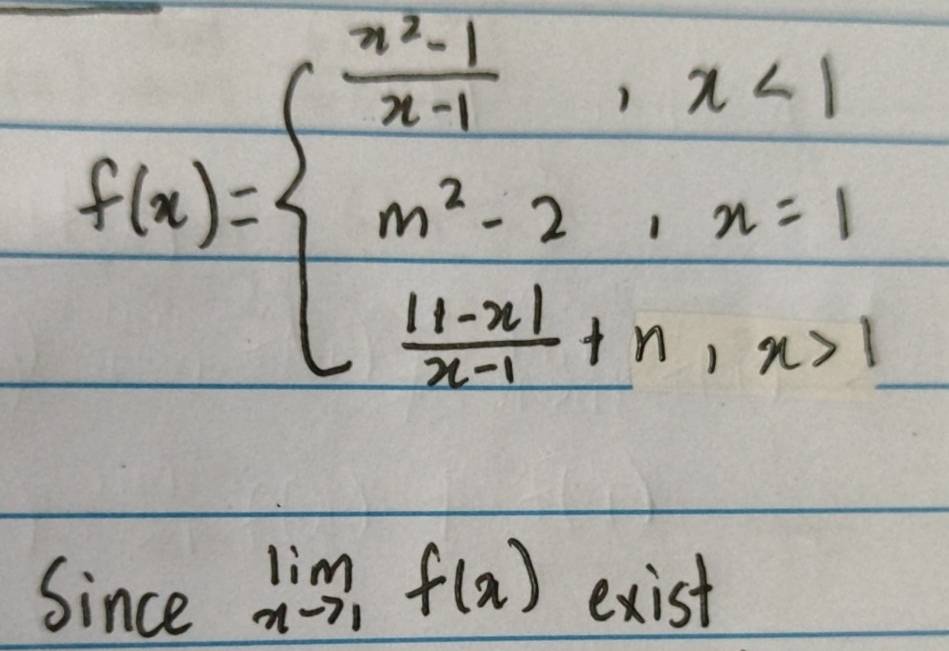 f(x) = { (x² - 1)/(x - 1) , x < 1
m² - 2 , x = 1
|1 - x|/(x - 1) + n , x > 1
Since lim x→1 f(x) exist